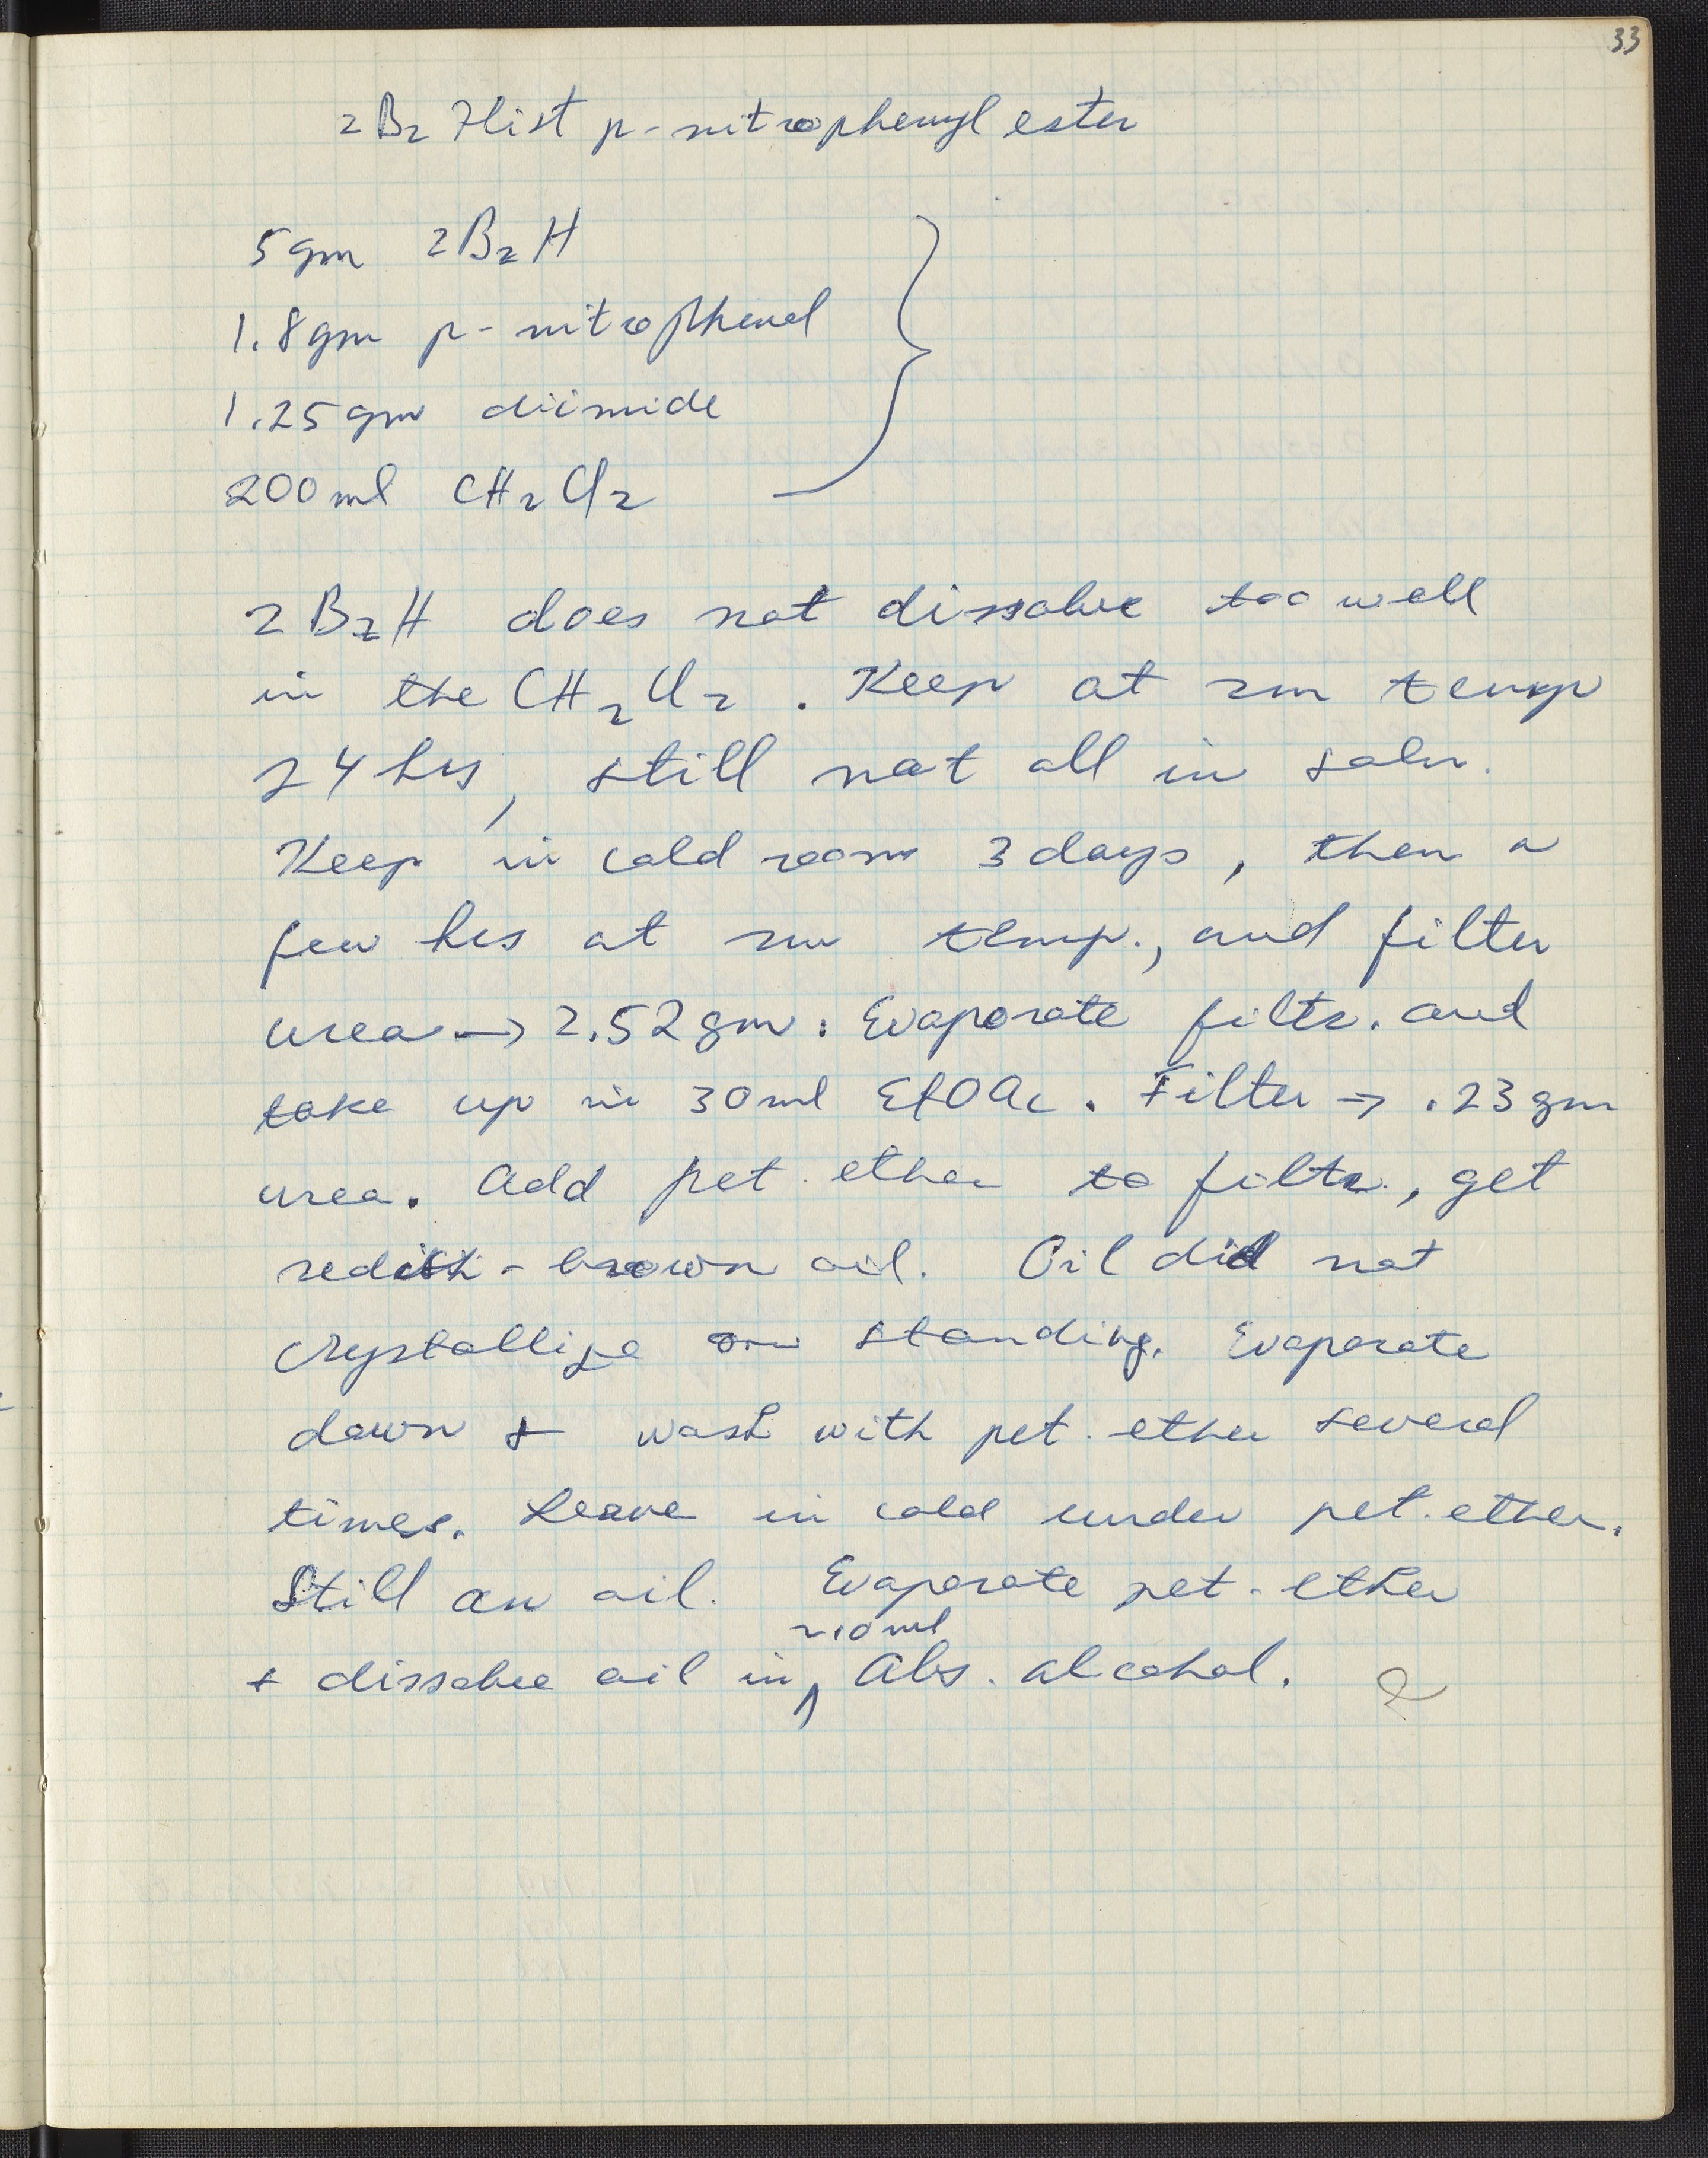 33
2Bz Hist p-nitrophenyl ester
5gm 2BzH
1.8gm p-nitrophenol
1.25gm diimide
200ml CH2Cl2
2BzH does not dissolve too well
in the CH2Cl2. Keep at rm temp
24 hrs, still not all in soln.
Keep in cold room 3 days, then a
few hrs at rm temp., and filter
urea → 2.52gm. Evaporate filtr. and
take up in 30ml EtOAc. Filter → .23gm
urea. Add pet. ether to filtr., get
redish-brown oil. Oil did not
crystallize on standing. Evaporate
down & wash with pet. ether several
times. Leave in cold under pet. ether.
Still an oil. Evaporate pet-ether
+ dissolve oil in ~10ml Abs. alcohol.